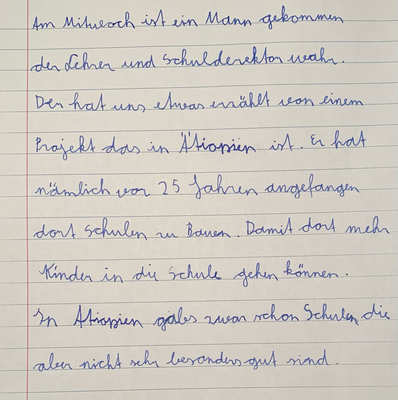 Am Mittwoch ist ein Mann gekommen
der Lehrer und Schulderektor wahr.
Der hat uns etwas erzählt von einem
Projekt das in Ätiopien ist. Er hat
nämlich vor 25 Jahren angefangen
dort Schulen zu Bauen. Damit dort mehr
Kinder in die Schule gehen können.
In Ätiopien gabs zwar schon Schulen die
aber nicht sehr besonders gut sind.